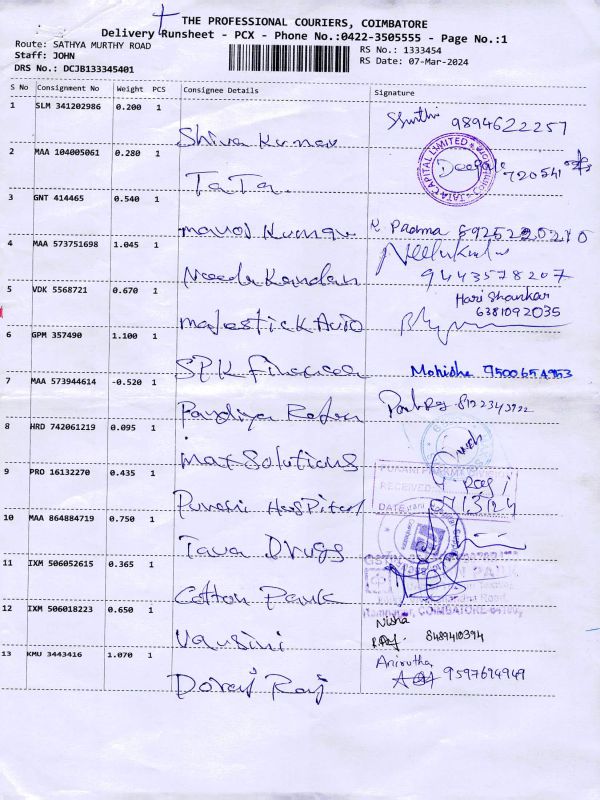 THE PROFESSIONAL COURIERS, COIMBATORE
Delivery Runsheet - PCX - Phone No.:0422-3505555 - Page No.:1
Route: SATHYA MURTHY ROAD
Staff: JOHN
DRS No.: DCJB133345401
RS No.: 1333454
RS Date: 07-Mar-2024
S No Consignment No Weight PCS Consignee Details Signature
1 SLM 341202986 0.200 1
Shiva Kumar 9894622257
2 MAA 104005061 0.280 1
TATA CAPITAL LIMITED
TaTa. Deepa 720541
3 GNT 414465 0.540 1
manoj Kumar Padma 8925220210
4 MAA 573751698 1.045 1
Neela Kandan Neelukndn
9443578207
5 VDK 5568721 0.670 1
Hari Shankar
6381092035
majestick Auto
6 GPM 357490 1.100 1
SPK Finances Mohisha 9500654953
7 MAA 573944614 -0.520 1
Pandiya 8122343722
8 HRD 742061219 0.095 1
max Solutions
9 PRO 16132270 0.435 1
RECEIVED
DATE
07/3/24
Puvani Hospital
10 MAA 864884719 0.750 1
Tava Drugs
11 IXM 506052615 0.365 1
Cotton Park
COIMBATORE
12 IXM 506018223 0.650 1
Nisha
8489410394
Vansini
13 KMU 3443416 1.070 1
Anirutha
9597694949
Doraj Raj